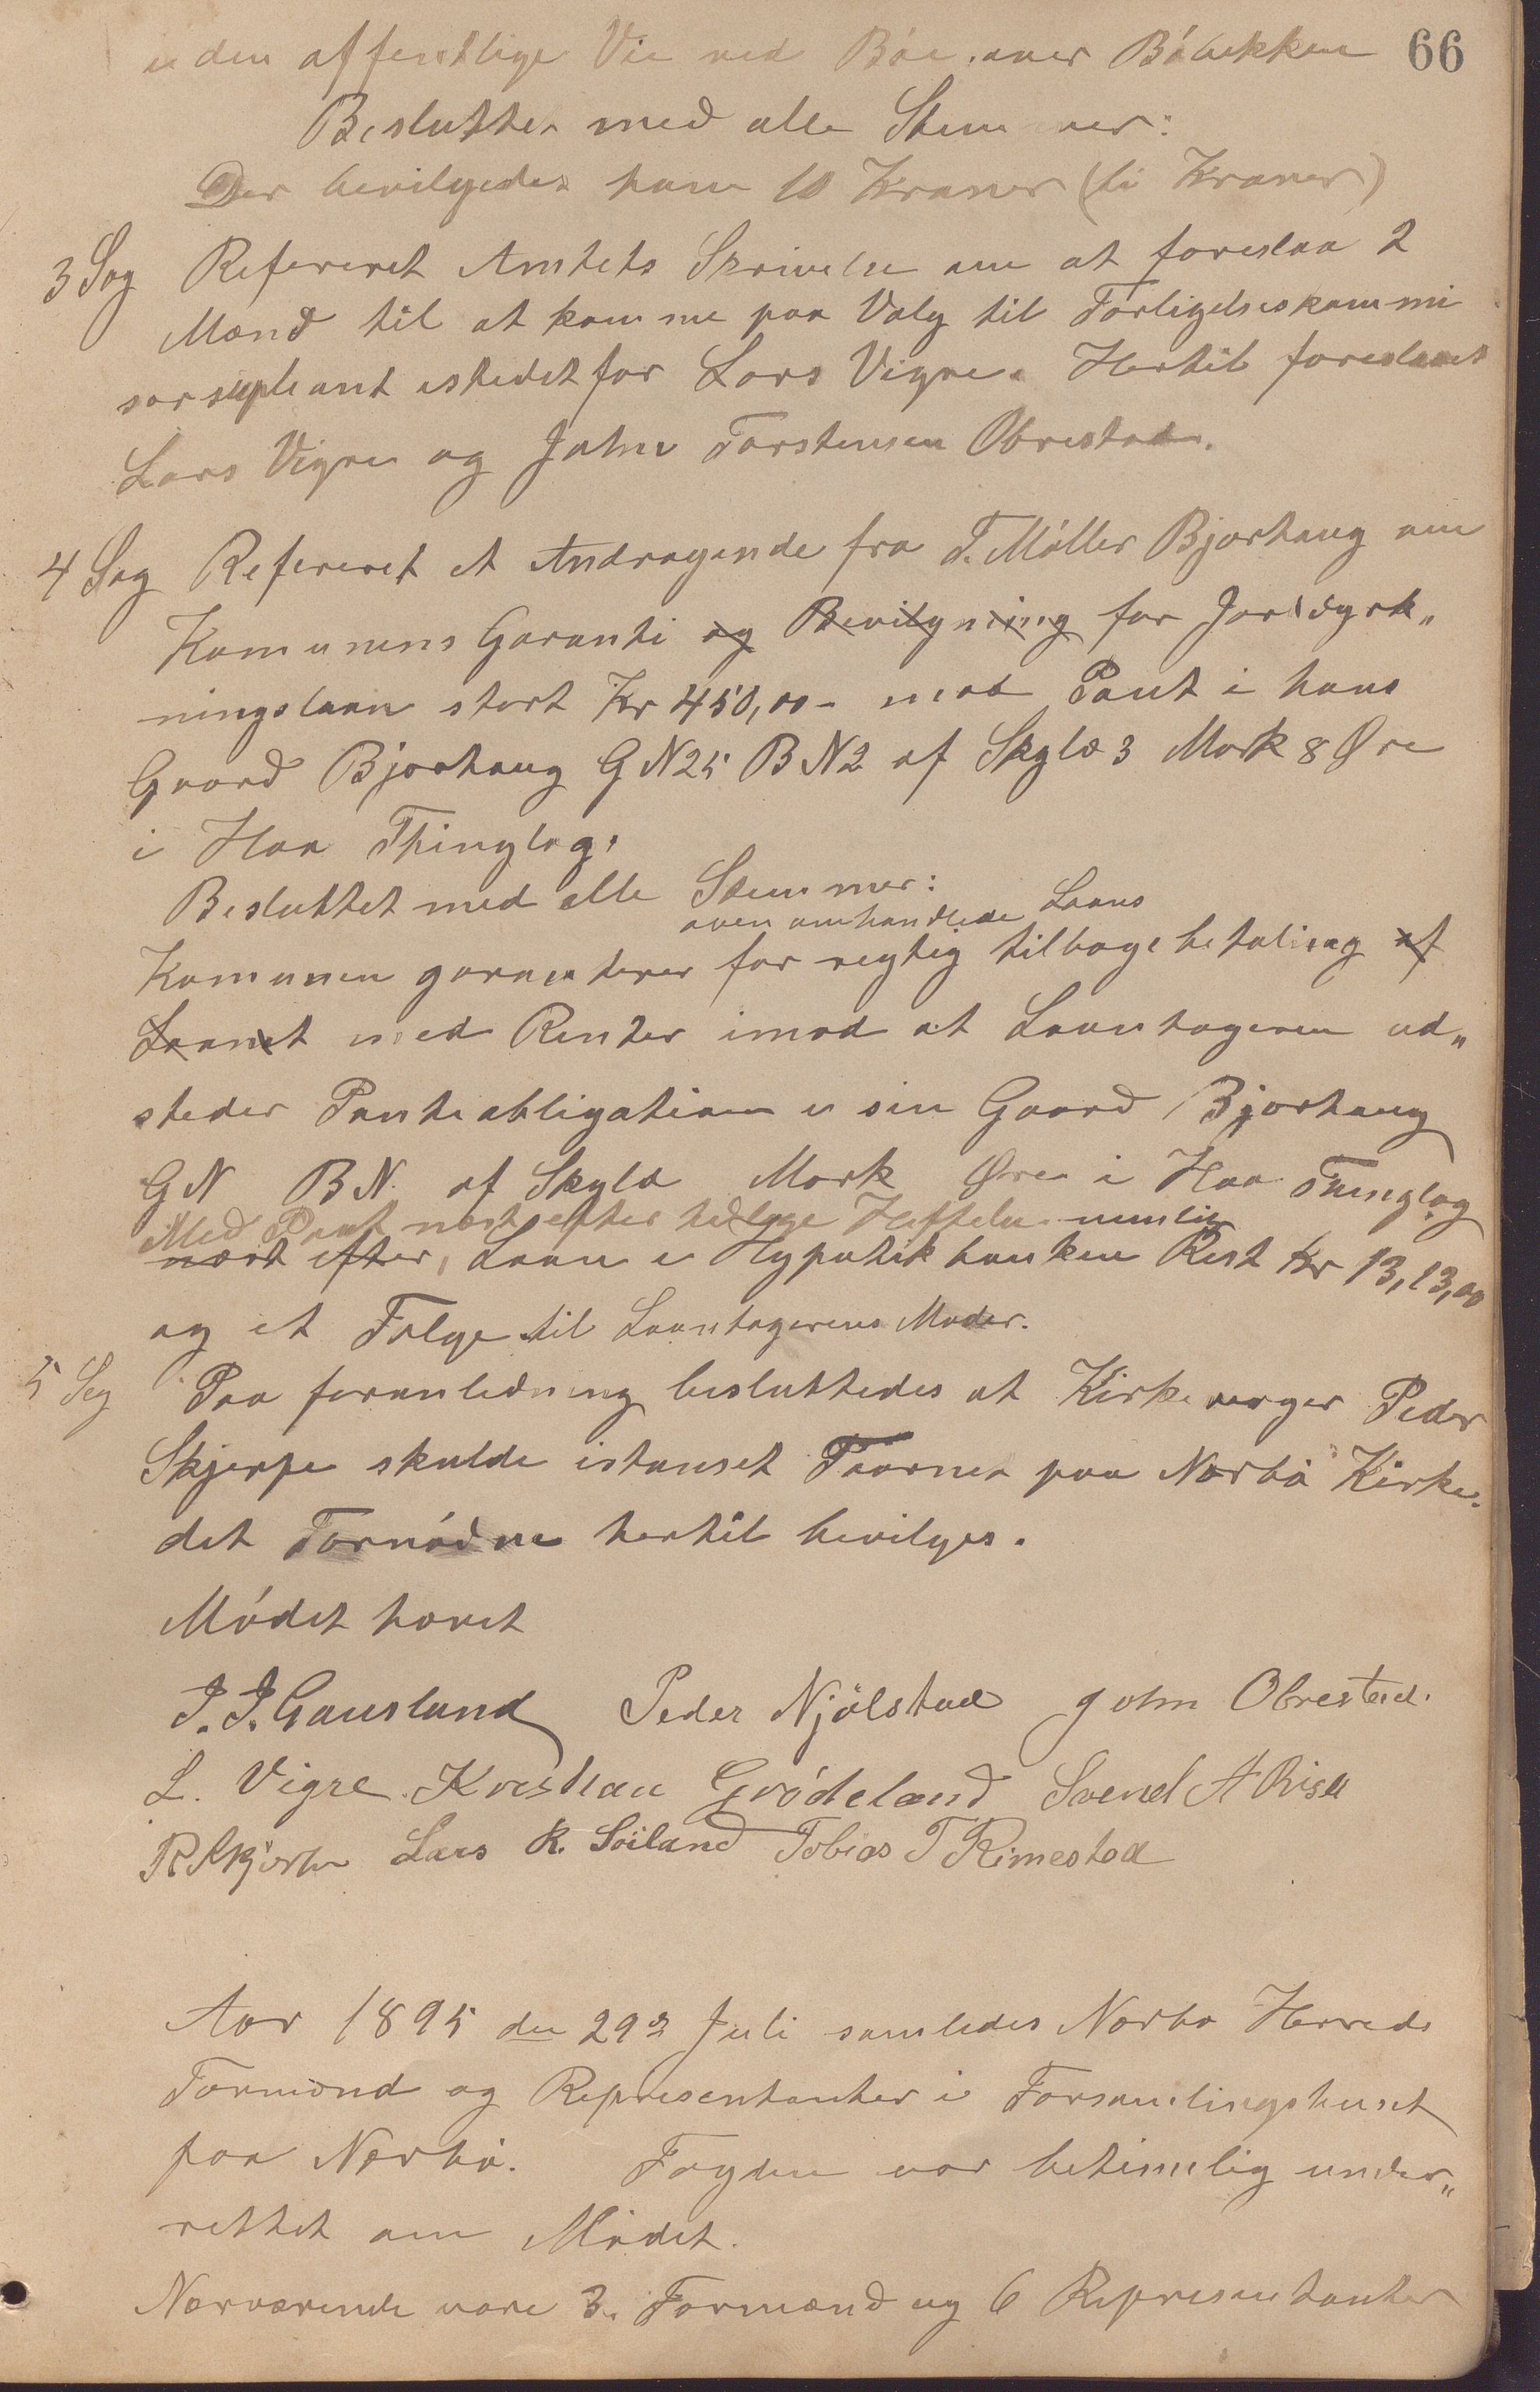 i den offentlige Vei ved Böe over Böbekken 66
Besluttet med alle Stemmer:
Der bevilgedes ham 10 Kroner (ti Kroner)
3 Sag Refereret Amtets Skrivelse om at foreslaa 2
Mænd til at komme paa Valg til Forligelseskommi
sorsupleant istedetfor Lars Vigre. Hertil foreslaaes
Lars Vigre og John Torstensen Obrestad.
4 Sag Refereret et Andragende fra T. Möller Bjorhaug om
Komunens Garanti og Bevilgning for Jorddyrk„
ningslaan stort Kr 450,00 - mod Pant i hans
Gaard Bjorhaug G N 25 B N 2 af Skyld 3 Mark 8 Øre
i Haa Thinglag.
Besluttet med alle Stemmer:
oven omhandlede Laans
Komunen garanterer for rigtig tilbagebetaling af
Laanet med Renter imod at Laantageren ud„
steder Panteobligation i sin Gaard Bjorhaug
G N B N. af Skyld Mark Øre i Haa Thinglag
Med Pant næst efter tidlige Heftelser nemlig
næst efter, Laan i Hypotekbanken Rest Kr 13,13,00
og et Folge til Laantagerens Moder.
5 Sag Paa foranledning besluttedes at Kirkeverger Peder
Skjerpe skulde istanset Taarnet paa Nærbö Kirke.
det Fornödne hertil bevilges.
Mödet hævet
J. J. Gausland Peder Njölstad John Obrestad.
L. Vigre. Kristian Grödeland Svend A Risa
P Skjerpe Lars R. Söiland Tobias T Rimestad
Aar 1895 den 29de Juli samledes Nærbø Herreds
Formænd og Representanter i Forsamlingshuset
paa Nærbö. Fogden var betimelig under„
rettet om Mödet.
Nærværende vare 3. Formænd og 6 Representanter